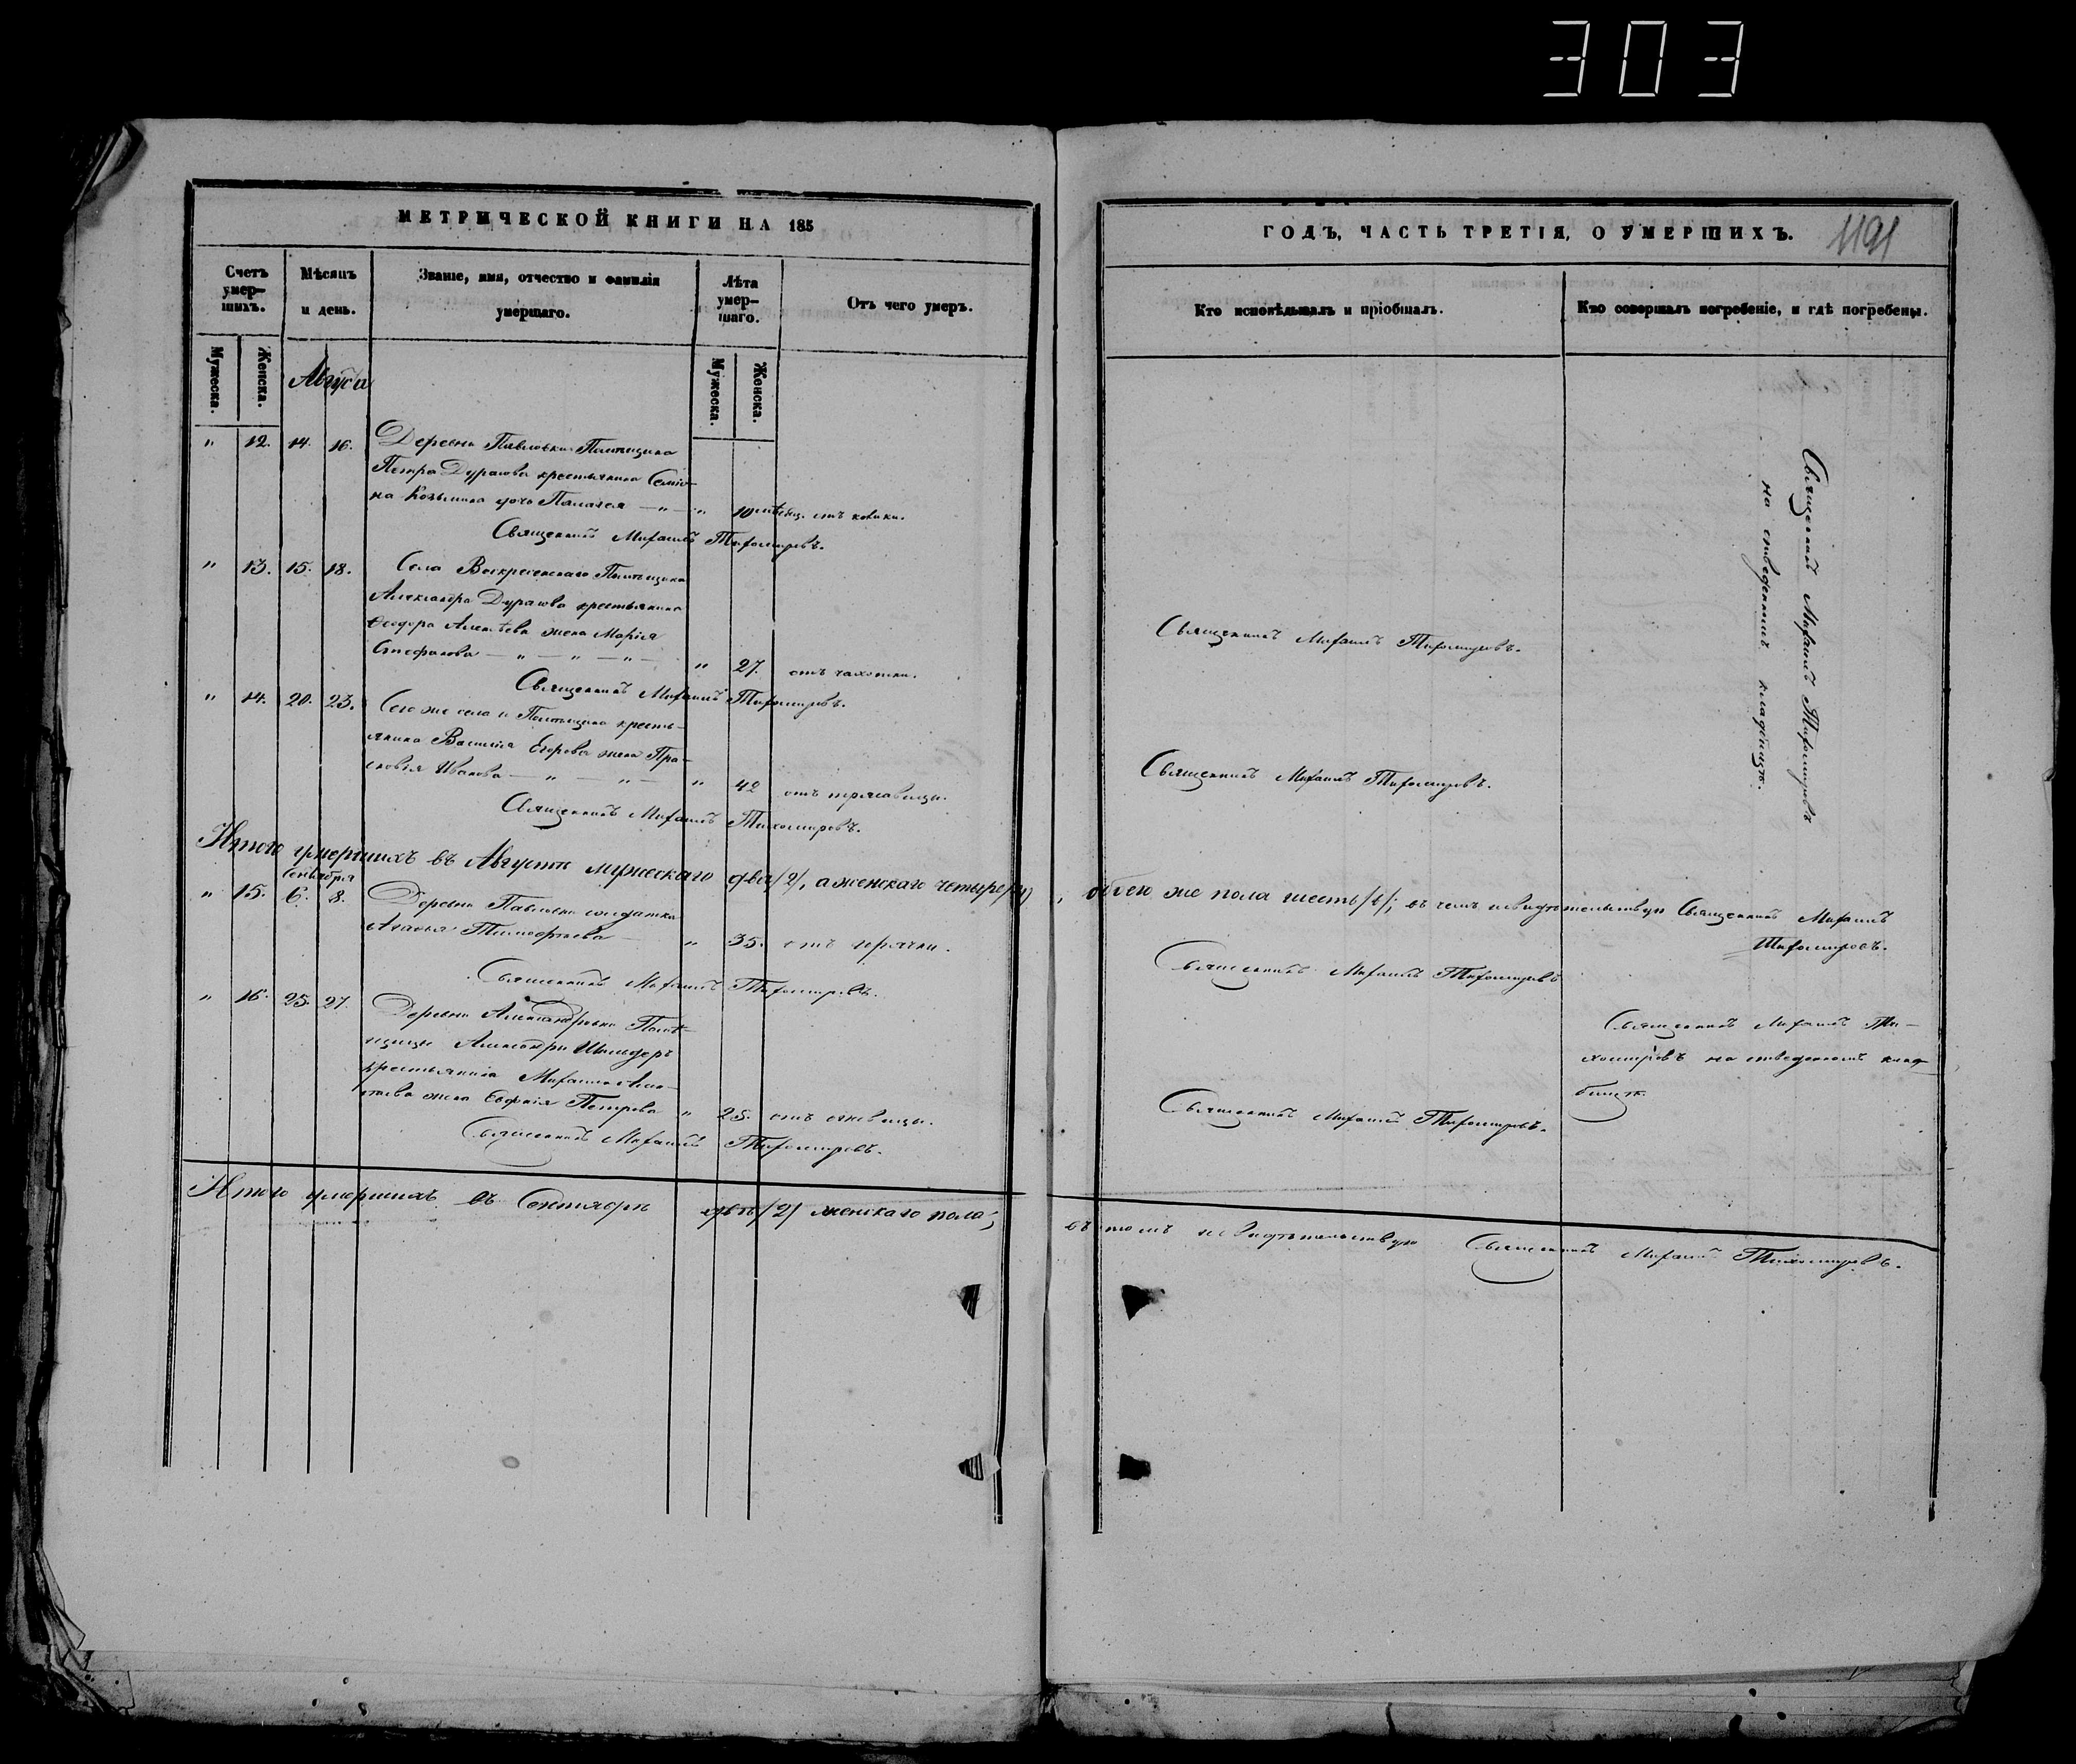 303
МЕТРИЧЕСКОЙ КНИГИ НА 185
Счетъ умер-шихъ.
Мѣсяцъ и день.
Званіе, имя, отчество и фамилія умершаго.
Лѣта умер-шаго.
Отъ чего умеръ.
Мужеска.
Женска.
Мужеска.
Женска.
Августа
" 12. 14. 16. Деревни Павловки Помѣщика
Петра Дурасова крестьянина Семіо-
на Козьмина дочь Палагея — " — " 10 мѣсяц. отъ колики.
Священникъ Михаилъ Тихомировъ.
" 13. 15. 18. Села Воскресенскаго Помѣщика
Александра Дурасова крестьянина
Ѳеодора Алексѣева жена Марія
Стефанова — " — " — " — " 27. отъ чахотки.
Священникъ Михаилъ Тихомировъ.
" 14. 20. 23. Сего же села и Помѣщика кресть-
янина Василія Егорова жена Пра-
сковія Иванова — " — " — " 42 отъ
Священникъ Михаилъ Тихомировъ.
Итого умершихъ въ Августѣ мужескаго два /2/, а женскаго четыре /4/
Сентября
" 15. 6. 8. Деревни Павловки солдатка
Агафья Тимофѣева — " 35. отъ горячки.
Священникъ Михаилъ Тихомировъ.
" 16. 25. 27. Деревни Александровки Помѣ-
щицы Александры Шильдеръ
крестьянина Михаила Алек-
сѣева жена Евфимія Петрова " 25. отъ огневицы.
Священникъ Михаилъ Тихомировъ.
Итого умершихъ въ Сентябрѣ двѣ /2/ женскаго пола;
ГОДЪ, ЧАСТЬ ТРЕТІЯ, О УМЕРШИХЪ.
1191
Кто исповѣдывалъ и пріобщалъ.
Кто совершалъ погребеніе, и гдѣ погребены.
Священникъ Михаилъ Тихомировъ
на отведенномъ кладбищѣ.
Священникъ Михаилъ Тихомировъ.
Священникъ Михаилъ Тихомировъ.
, обоего же пола шесть /6/; въ чемъ свидѣтельствую Священникъ Михаилъ
Тихомировъ.
Священникъ Михаилъ Тихомировъ
Священникъ Михаилъ Ти-
хомировъ на отведенномъ клад-
бищѣ.
Священникъ Михаилъ Тихомировъ.
въ томъ свидѣтельствую Священникъ Михаилъ Тихомировъ.